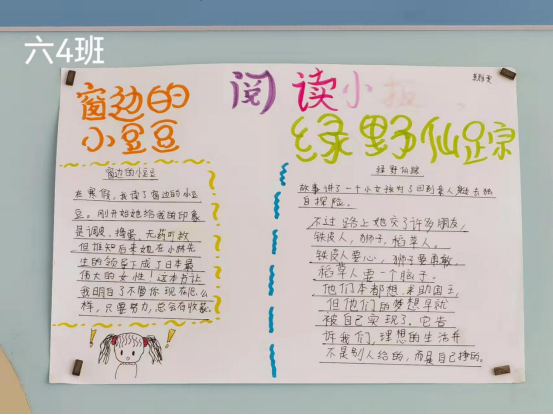 六4班
阅读小报
窗边的
小豆豆
窗边的小豆豆
在寒假,我读了窗边的小豆
豆。刚开始她给我的印象
是调皮、捣蛋、无药可救
但谁知后来她在小林先
生的领导下成了日本最
伟大的女性!这本书让
我明白了不管你现在怎么
样,只要努力,总会有收获。
绿野仙踪
绿野仙踪
故事讲了一个小女孩为了回到亲人身边独
自探险。
不过路上她交了许多朋友,
铁皮人,狮子,稻草人。
铁皮人要心,狮子要勇敢,
稻草人要一个脑子。
他们本都想求助国王,
但他们的梦想早就
被自己实现了。它告
诉我们,理想的生活并
不是别人给的,而是自己挣的。